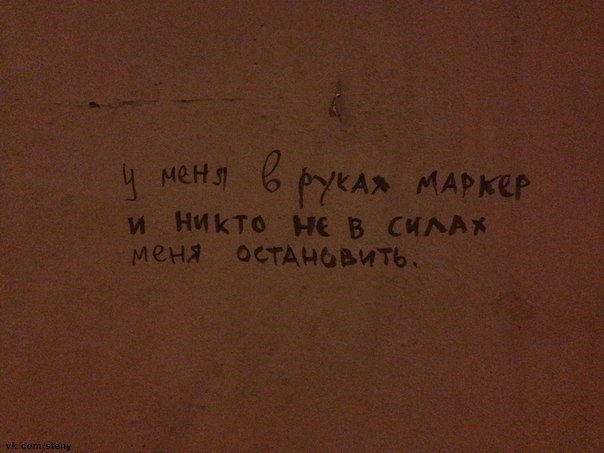 у меня в руках маркер
и никто не в силах
меня остановить.
vk.com/steny